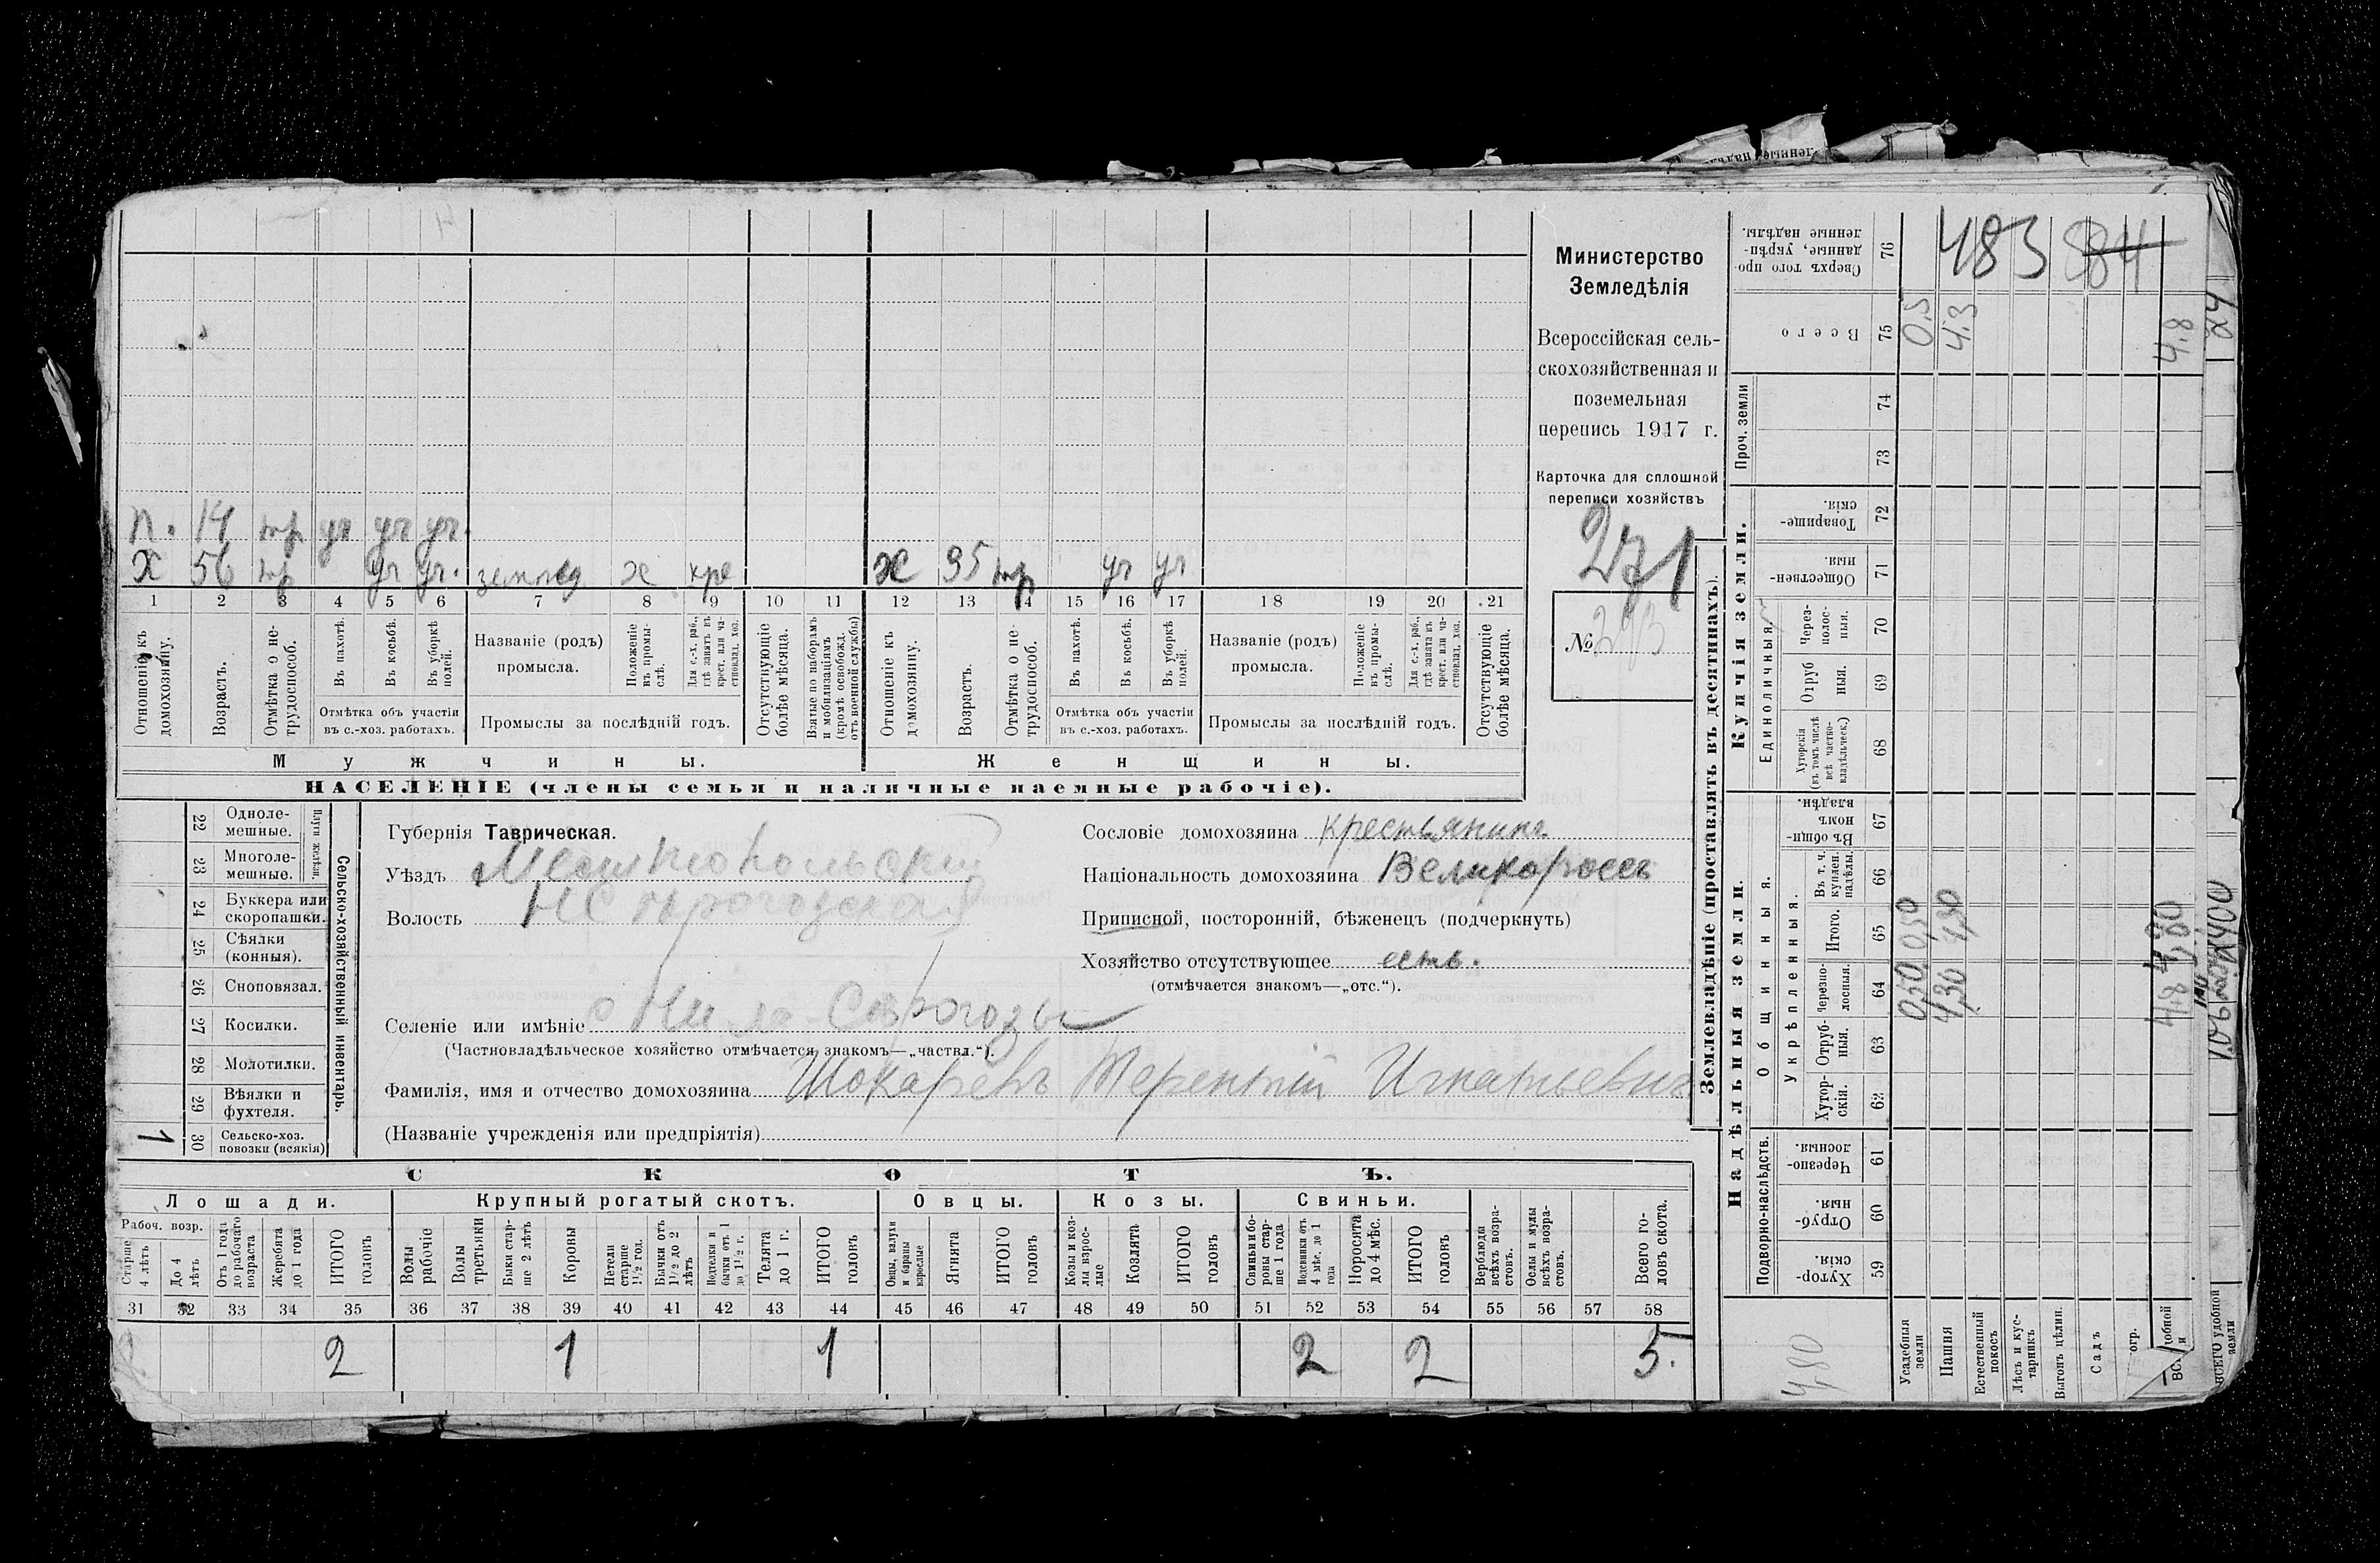 п. 14 тр уч уч уч.
х 56 тр уч уч. землед х кре ж 35 тр уч уч
1 2 3 4 5 6 7 8 9 10 11 12 13 14 15 16 17 18 19 20 21
Отношеніе къ домохозяину.
Возрастъ.
Отмѣтка о нетрудоспособ.
Въ пахотѣ.
Въ косьбѣ.
Въ уборкѣ полей.
Отмѣтка объ участіи
въ с.-хоз. работахъ.
Названіе (родъ)
промысла.
Положеніе въ промыслѣ.
Для с.-х. раб., гдѣ занятъ въ крест. или частновлад. хоз.
Промыслы за послѣдній годъ.
Отсутствующіе болѣе мѣсяца.
Взятые по наборамъ и мобилизаціямъ (кромѣ освобожд. отъ военной службы)
Отношеніе къ домохозяину.
Возрастъ.
Отмѣтка о нетрудоспособ.
Въ пахотѣ.
Въ косьбѣ.
Въ уборкѣ полей.
Отмѣтка объ участіи
въ с.-хоз. работахъ.
Названіе (родъ)
промысла.
Положеніе въ промыслѣ.
Для с.-х. раб., гдѣ заната въ крест. или частновлад. хоз.
Промыслы за послѣдній годъ.
Отсутствующіе болѣе мѣсяца.
Мужчины. Женщины.
НАСЕЛЕНІЕ (члены семьи и наличные наемные рабочіе).
Министерство
Земледѣлія
Всероссійская сель-
скохозяйственная и
поземельная
перепись 1917 г.
Карточка для сплошной
переписи хозяйствъ
271
№ 293
22 Одноле-
мешные.
23 Многоле-
мешные.
Плуги желѣзн.
24 Буккера или
скоропашки.
25 Сѣялки
(конныя).
26 Сноповязал.
27 Косилки.
28 Молотилки.
29 Вѣялки и
фухтеля.
1 30 Сельско-хоз.
повозки (всякія)
Сельско-хозяйственный инвентарь.
Губернія Таврическая.
Уѣздъ Мелитопольскій
Волость
Сословіе домохозяина крестьянинъ
Національность домохозяина Великороссъ
Приписной, посторонній, бѣженецъ (подчеркнуть)
Хозяйство отсутствующее есть.
(отмѣчается знакомъ—„отс.“).
Селеніе или имѣніе с. Ниж.-Сѣрогозы
(Частновладѣльческое хозяйство отмѣчается знакомъ—„частвл.“).
Фамилія, имя и отчество домохозяина Шокаревъ Терентій Игнатьевич
(Названіе учрежденія или предпріятія)
СКОТЪ.
Лошади. Крупный рогатый скотъ. Овцы. Козы. Свиньи.
Рабоч. возр.
Старше 4 лѣтъ
До 4 лѣтъ
Отъ 1 года до рабочаго возраста
Жеребята до 1 года
ИТОГО головъ
Волы рабочіе
Волы третьяки
Быки старше 2 лѣтъ
Коровы
Нетели старше 1½ год.
Бычки отъ 1½ до 2 лѣтъ
Подтелки и бычки отъ 1 до 1½ г.
Телята до 1 г.
ИТОГО головъ
Овцы, валухи и бараны взрослые
Ягнята
ИТОГО головъ
Козы и козлы взрослые
Козлята
ИТОГО головъ
Свиньи и боровы старше 1 года
Подсвинки отъ 4 мѣс. до 1 года
Поросята до 4 мѣс.
ИТОГО головъ
Верблюды всѣхъ возрастовъ.
Ослы и мулы всѣхъ возрастовъ.
Всего головъ скота.
31 32 33 34 35 36 37 38 39 40 41 42 43 44 45 46 47 48 49 50 51 52 53 54 55 56 57 58
2 2 1 1 2 2 5.
Землевладѣніе (проставлять въ десятинахъ).
Надѣльныя земли. Купчія земли.
Подворно-наслѣдств.
Общинныя.
Укрѣпленныя.
Единоличныя
Проч. земли
Хутор-
скія. 59
Отруб-
ныя. 60
Черезпо-
лосныя. 61
Хутор-
скія. 62
Отруб-
ныя. 63
Черезпо-
лосныя. 64
Итого. 65
Въ т. ч. куплен. надѣлы. 66
Въ общи-
номъ
владѣн. 67
Хуторскія (въ томъ числѣ всѣ частновладѣльческ.) 68
Отруб
ныя. 69
Через-
полос-
ныя. 70
Обществен-
ныя. 71
Товарище-
скія. 72
73
74
Всего 75
Сверхъ того про-
данные, укрѣп-
ленные надѣлы. 76
4,80
Усадебныя земли 0,50 0,50 0,5
Пашня 4,30 4,30 4,3
Естественный покосъ
Лѣсъ и кустарникъ
Выгонъ цѣлин.
Садъ
огр.
4,8 4,80 4.8
ВСЕГО удобной земли
483 884
24